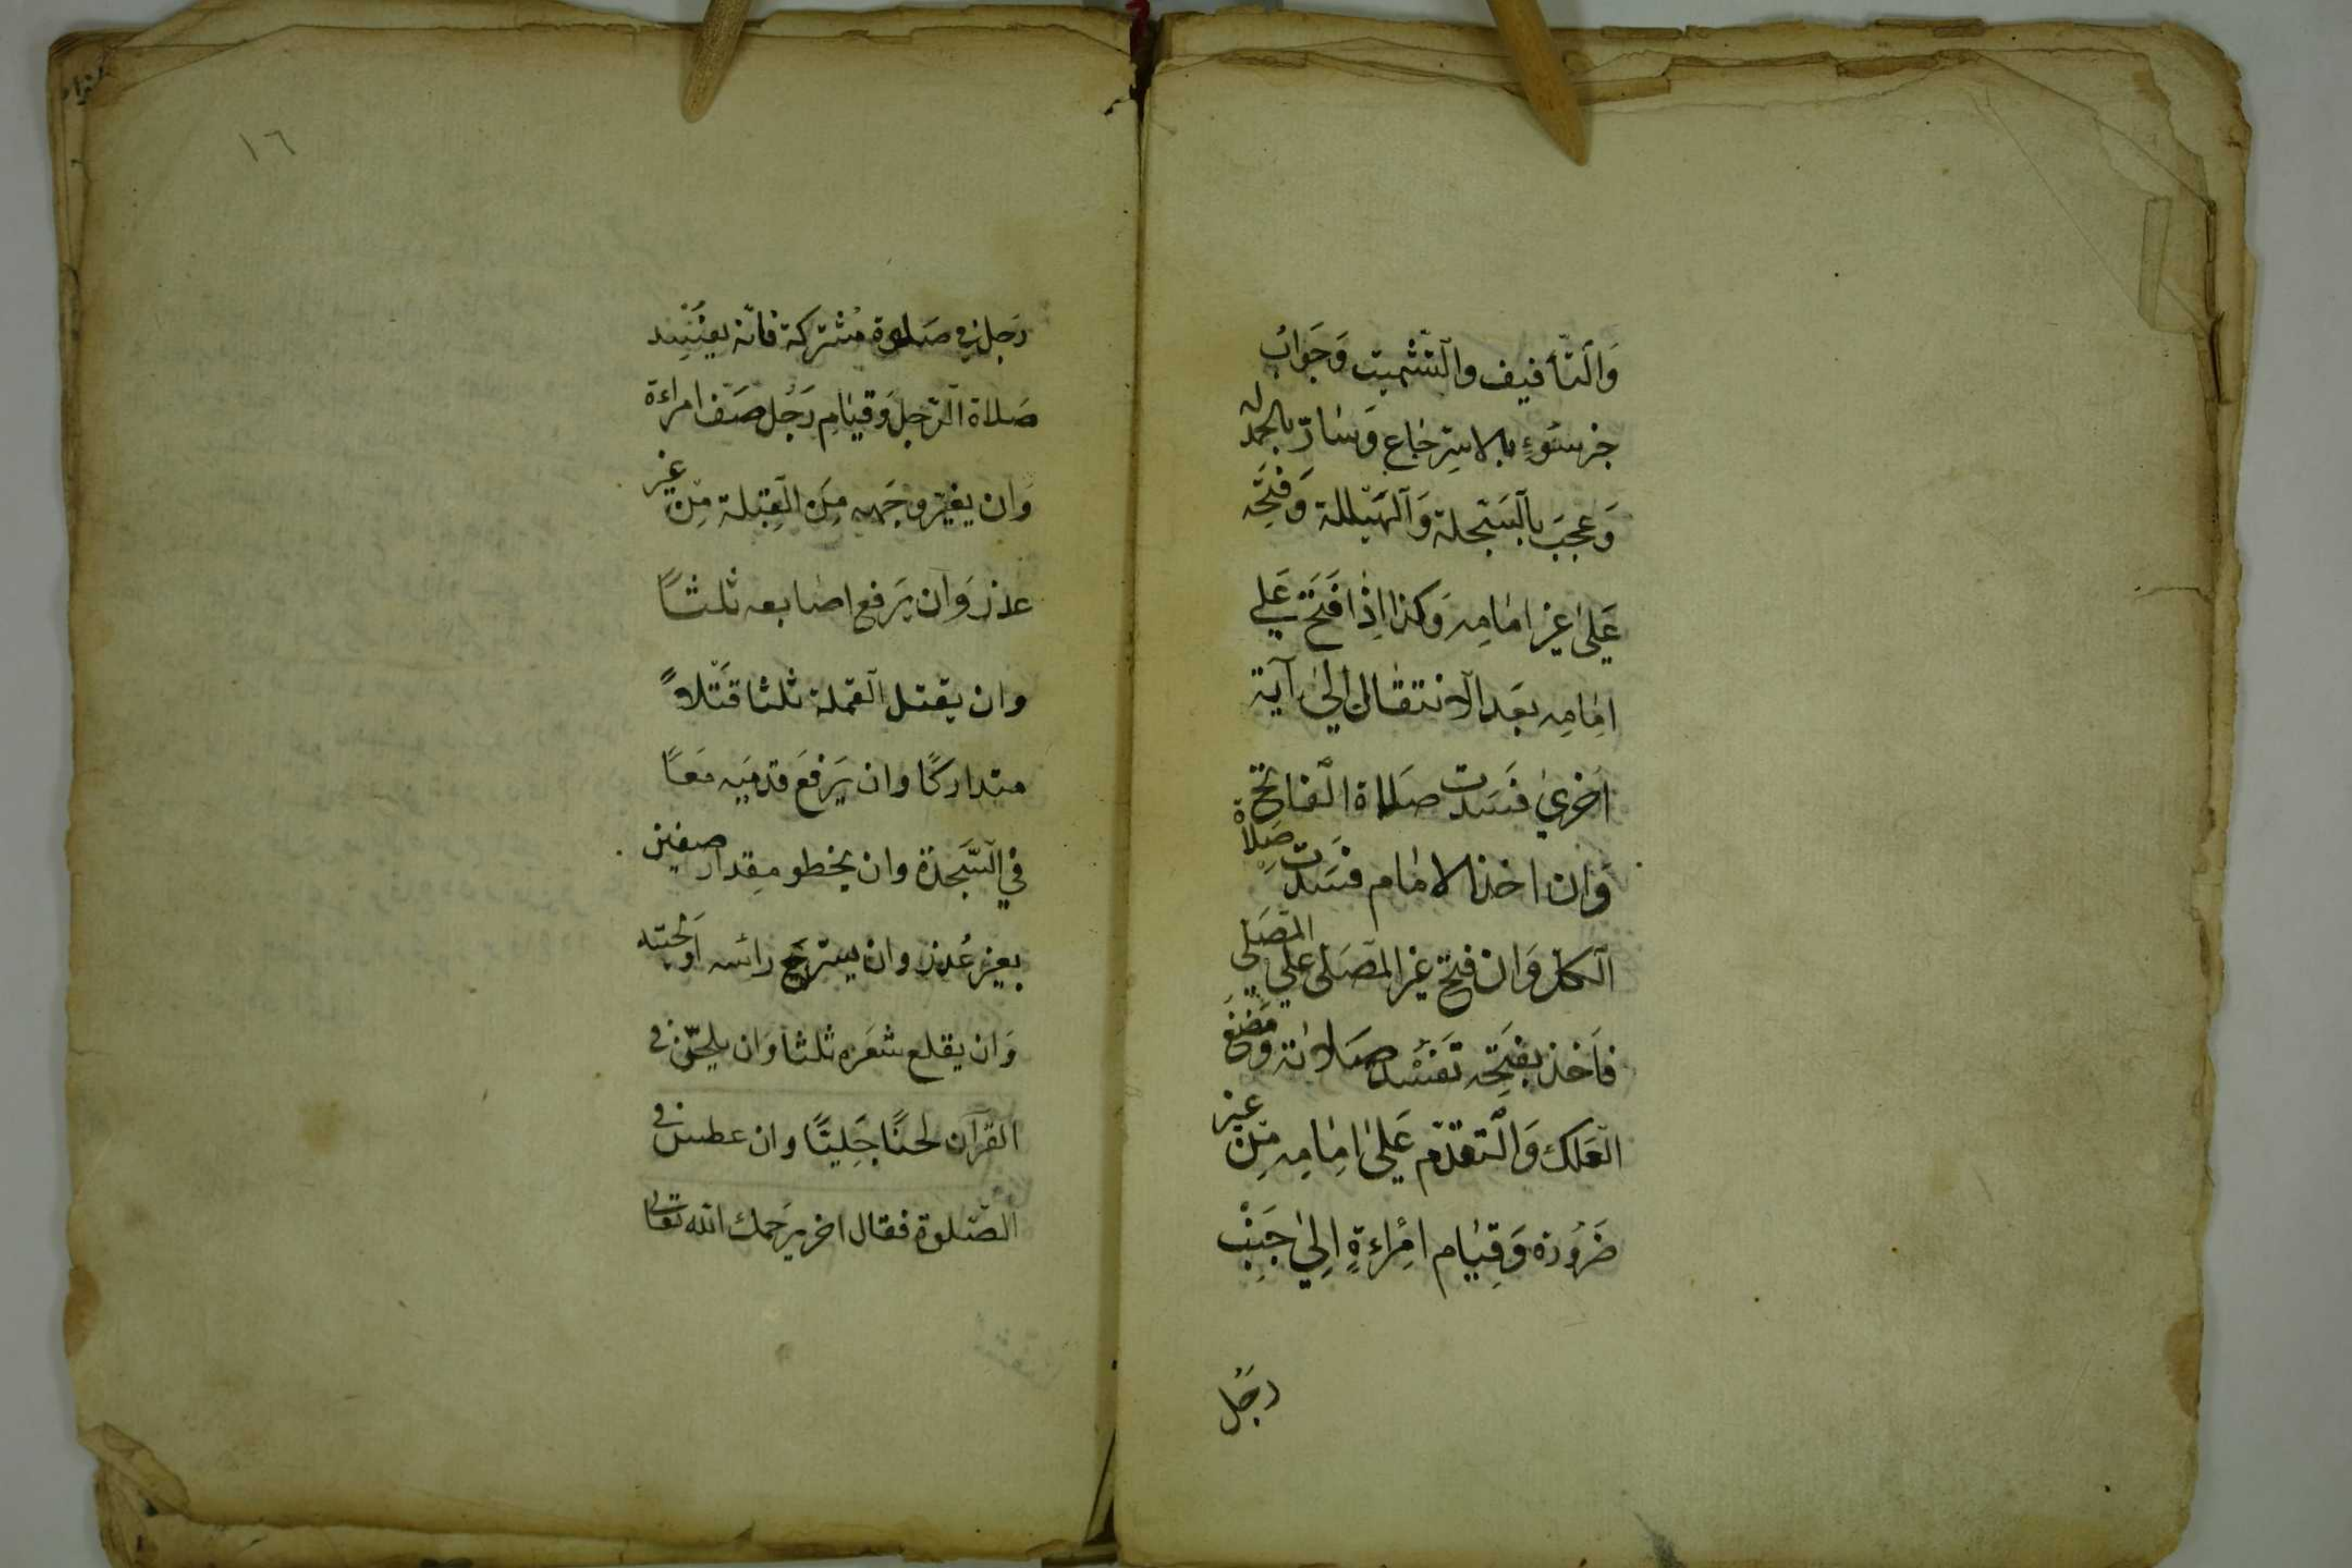 وَالتَّأفيف والتَّشْميت وَجَوابُ
خبر سُوءٍ بالاسِترجاع وَسَارّ بالحمد له
وَعجَبَ بالسَّبْحلة وَالهَيْللة وَفتحِه
عَلىٰ غير امامِه وَكذا اِذا فَتَحَ عَلى
امِامِه بعَد الانتقال الىٰ آية
اخرىٰ فسَدت صَلاة الفاتح
وَان اخذ الامام فسَدت صَلاة
الكلّ وَان فتح غير المصَلى على المصَلى
فاَخذ بفتَحِه تفسُد صَلاته وَمَضغ
العَلك وَالتقدّم عَلىٰ امِامِه مِن غير
ضَرُورة وَقِيام امِراءةٍ اِلىٰ جَنِبْ
رجُل
١٦
رَجل فى صَلوة مُشتركة فانّه يفسُد
صَلاة الرّجل وَقيامِ رَجُل صَف امراءة
وَان يغيّر وجَهه مِن القِبلة مِن غير
عذر وَان يَرفع اصابعه ثلثاً
وان يقتل القملة ثلثا قتْلاً
متداركاً وان يَرفعَ قدميَه معًا
في السَّجدة وان يخطو مِقدار صفين
بغير عُذر وان يسترح رائسه اَو لحيته
وَان يقلع شعَره ثلثا وَان يلحّن فى
القرآن لحنًا جَليًا وان عطس فى
الصَّلوة فقال اخر يرَحمك الله تعالى